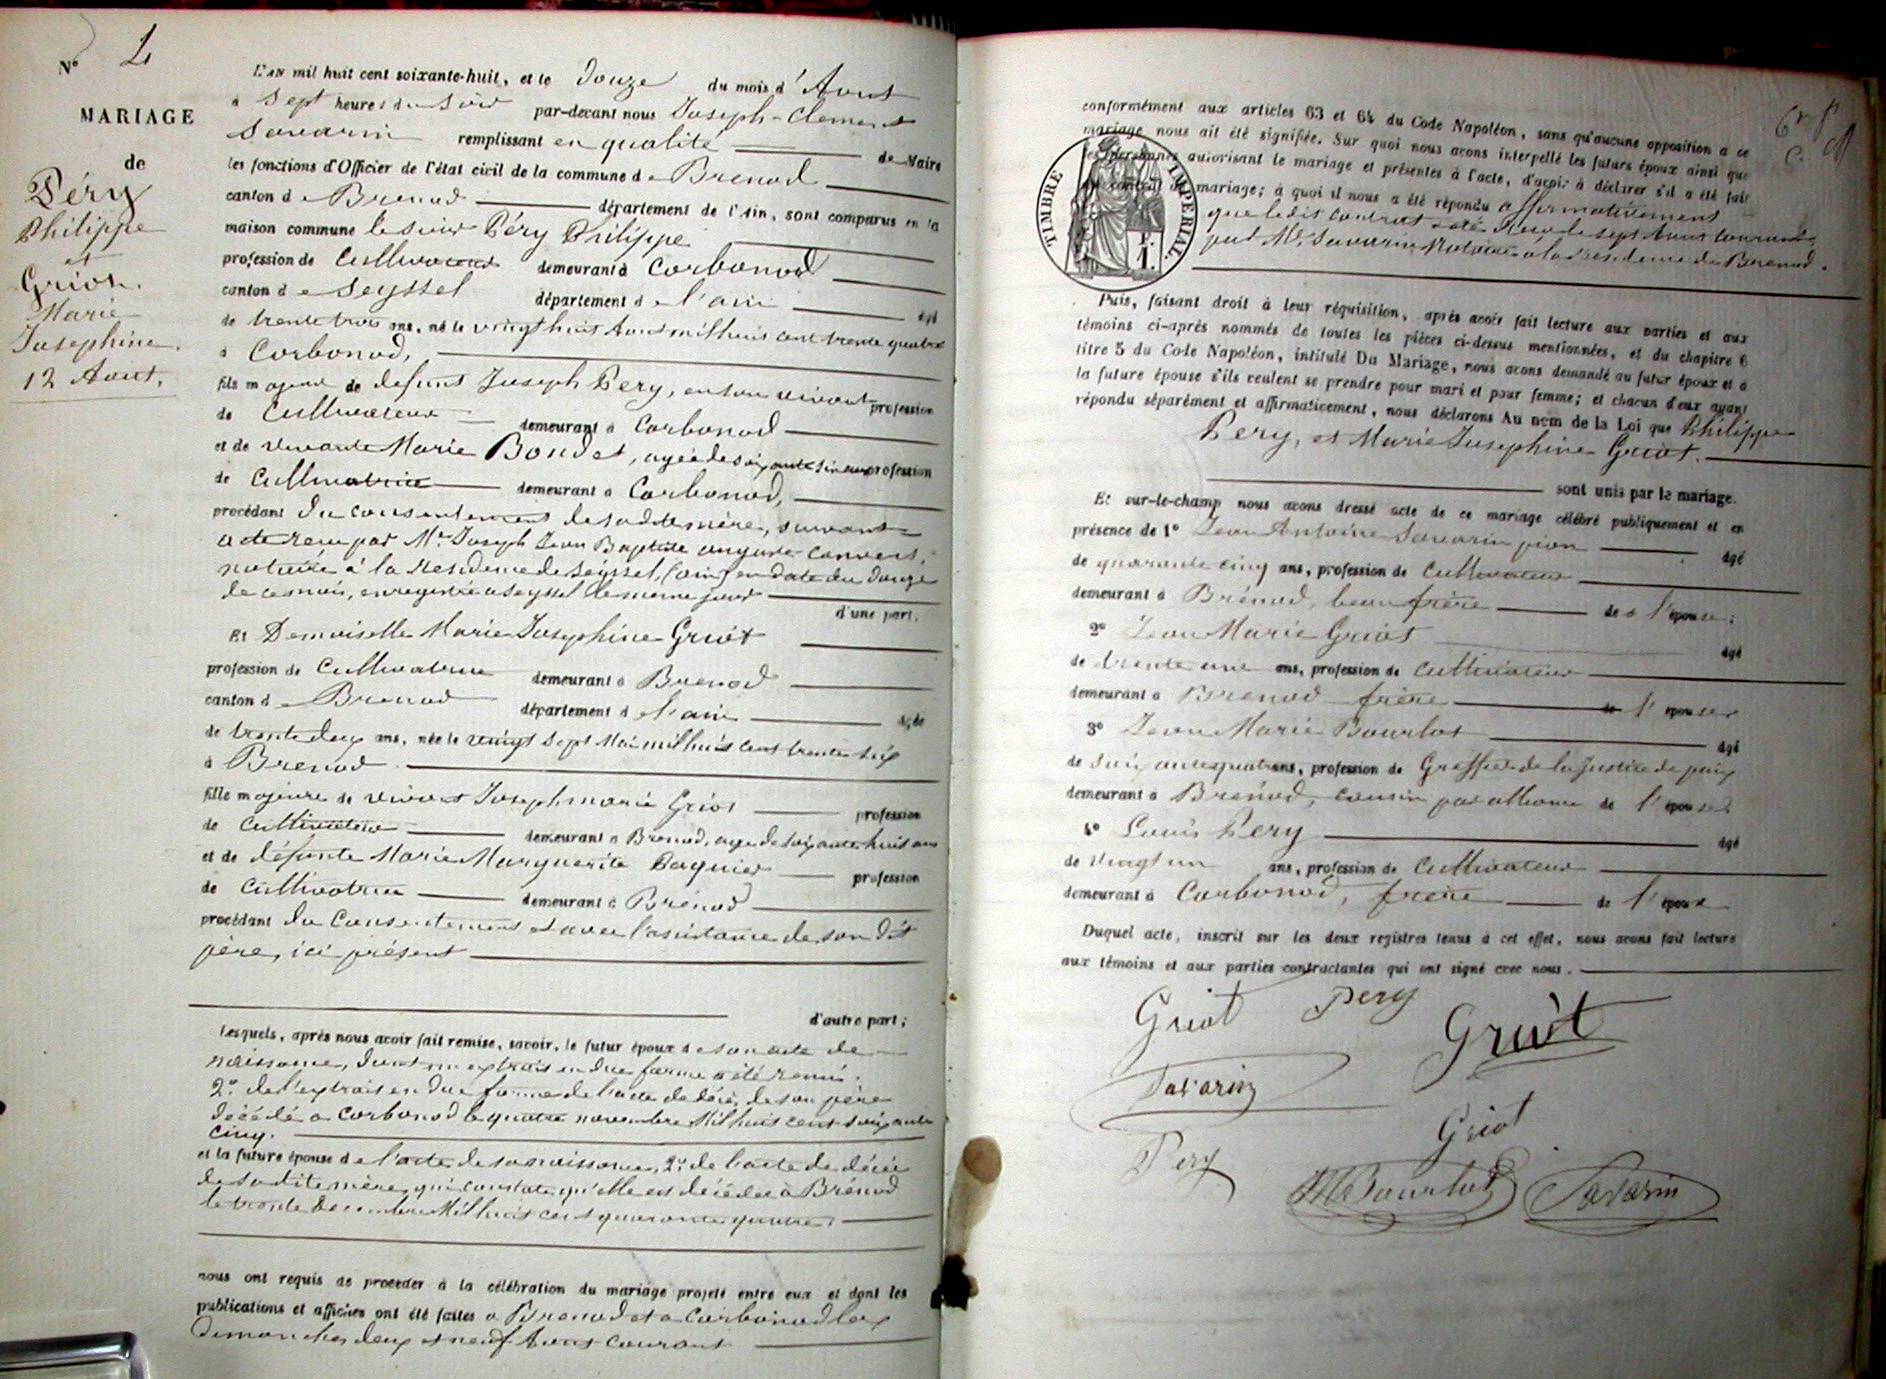 N° 4
MARIAGE
de
Péry
Philippe
et
Griot
Marie
Josephine.
12 Aout.
L'AN mil huit cent soixante-huit, et le douze du mois d'Aout
à sept heures du Soir par-devant nous Joseph-Clement
Savarin remplissant en qualité de Maire
les fonctions d'Officier de l'état civil de la commune de Brenod
canton de Brenod département de l'Ain, sont comparus en la
maison commune le sieur Péry Philippe
profession de Cultivateur demeurant à Corbonod
canton de Seyssel département de l'ain âgé
de trente trois ans, né le vingt huit Aout mil huit cent trente quatre
à Corbonod,
fils majeur de defunt Joseph Pery, en son vivant profession
de Cultivateur demeurant à Corbonod
et de vivante Marie Bondet, agée de soixante six ans profession
de Cultivatrice demeurant à Corbonod,
procédant du consentement de sadite mère, suivant
acte reçu par Mr. Joseph Jean Baptiste auguste convers,
notaire à la résidence de Seyssel, (ain) en date du douze
de ce mois, enregistré a Seyssel le meme jour
d'une part.
Et Demoiselle Marie Josephine Griot
profession de Cultivatrice demeurant à Brenod
canton de Brenod département de l'ain âgée
de trente deux ans, née le vingt sept Mai mil huit cent trente six
à Brenod
fille majeure de vivant Joseph marie Griot profession
de Cultivateur demeurant à Brenod, agé de soixante huit ans
et de défunte Marie Marguerite profession
de Cultivatrice demeurant à Brénod
procédant du Consentement et avec l'assistance de son dit
père, ici présent
d'autre part ;
Lesquels, après nous avoir fait remise, savoir, le futur époux de son acte de
naissance, dont un extrait en due forme a été remis.
2° de l'extrait en due forme de l'acte de décès de son père
décédé a Corbonod le quatre novembre Mil huit cent soixante
cinq.
et la future épouse de l'acte de sa naissance, 2° de l'acte de décès
de sadite mère, qui constate qu'elle est décédée à Brénod
le trente Decembre Mil huit cent quarante quatre.
nous ont requis de procéder à la célébration du mariage projeté entre eux et dont les
publications et affiches ont été faites à Brenod et a Corbonod les
dimanches deux et neuf Aout courant
conformément aux articles 63 et 64 du Code Napoléon, sans qu'aucune opposition a ce
mariage nous ait été signifiée. Sur quoi nous avons interpellé les futurs époux ainsi que
les personnes autorisant le mariage et présentes à l'acte, d'avoir à déclarer s'il a été fait
un contrat de mariage; à quoi il nous a été répondu affirmativement
que ledit contrat a été Reçu le sept Aout courant
par Mr. Savarin Notaire a la résidence de Brenod.
TIMBRE IMPERIAL.
F.
1.
Puis, faisant droit à leur réquisition, après avoir fait lecture aux parties et aux
témoins ci-après nommés de toutes les pièces ci-dessus mentionnées, et du chapitre 6
titre 5 du Code Napoléon, intitulé Du Mariage, nous avons demandé au futur époux et à
la future épouse s'ils veulent se prendre pour mari et pour femme; et chacun d'eux ayant
répondu séparément et affirmativement, nous déclarons Au nom de la Loi que Philippe
Pery, et Marie Josephine Griot.
sont unis par le mariage.
Et sur-le-champ nous avons dressé acte de ce mariage célébré publiquement et en
présence de 1° Jean Antoine Savarin pion âgé
de quarante cinq ans, profession de Cultivateur
demeurant à Brénod, beau frère de l'épouse;
2° Jean Marie Griot âgé
de trente une ans, profession de Cultivateur
demeurant à Brenod frère de l'épouse
3° Jean Marie Bourlot âgé
de soixante quatre ans, profession de Greffier de la Justice de paix
demeurant à Brenod, cousin par alliance de l'épouse
4° Louis Pery âgé
de vingt un ans, profession de Cultivateur
demeurant à Corbonod, frère de l'époux
Duquel acte, inscrit sur les deux registres tenus à cet effet, nous avons fait lecture
aux témoins et aux parties contractantes qui ont signé avec nous.
Griot Pery
Griot
Savarin
Griot
Pery
Bourlot Savarin